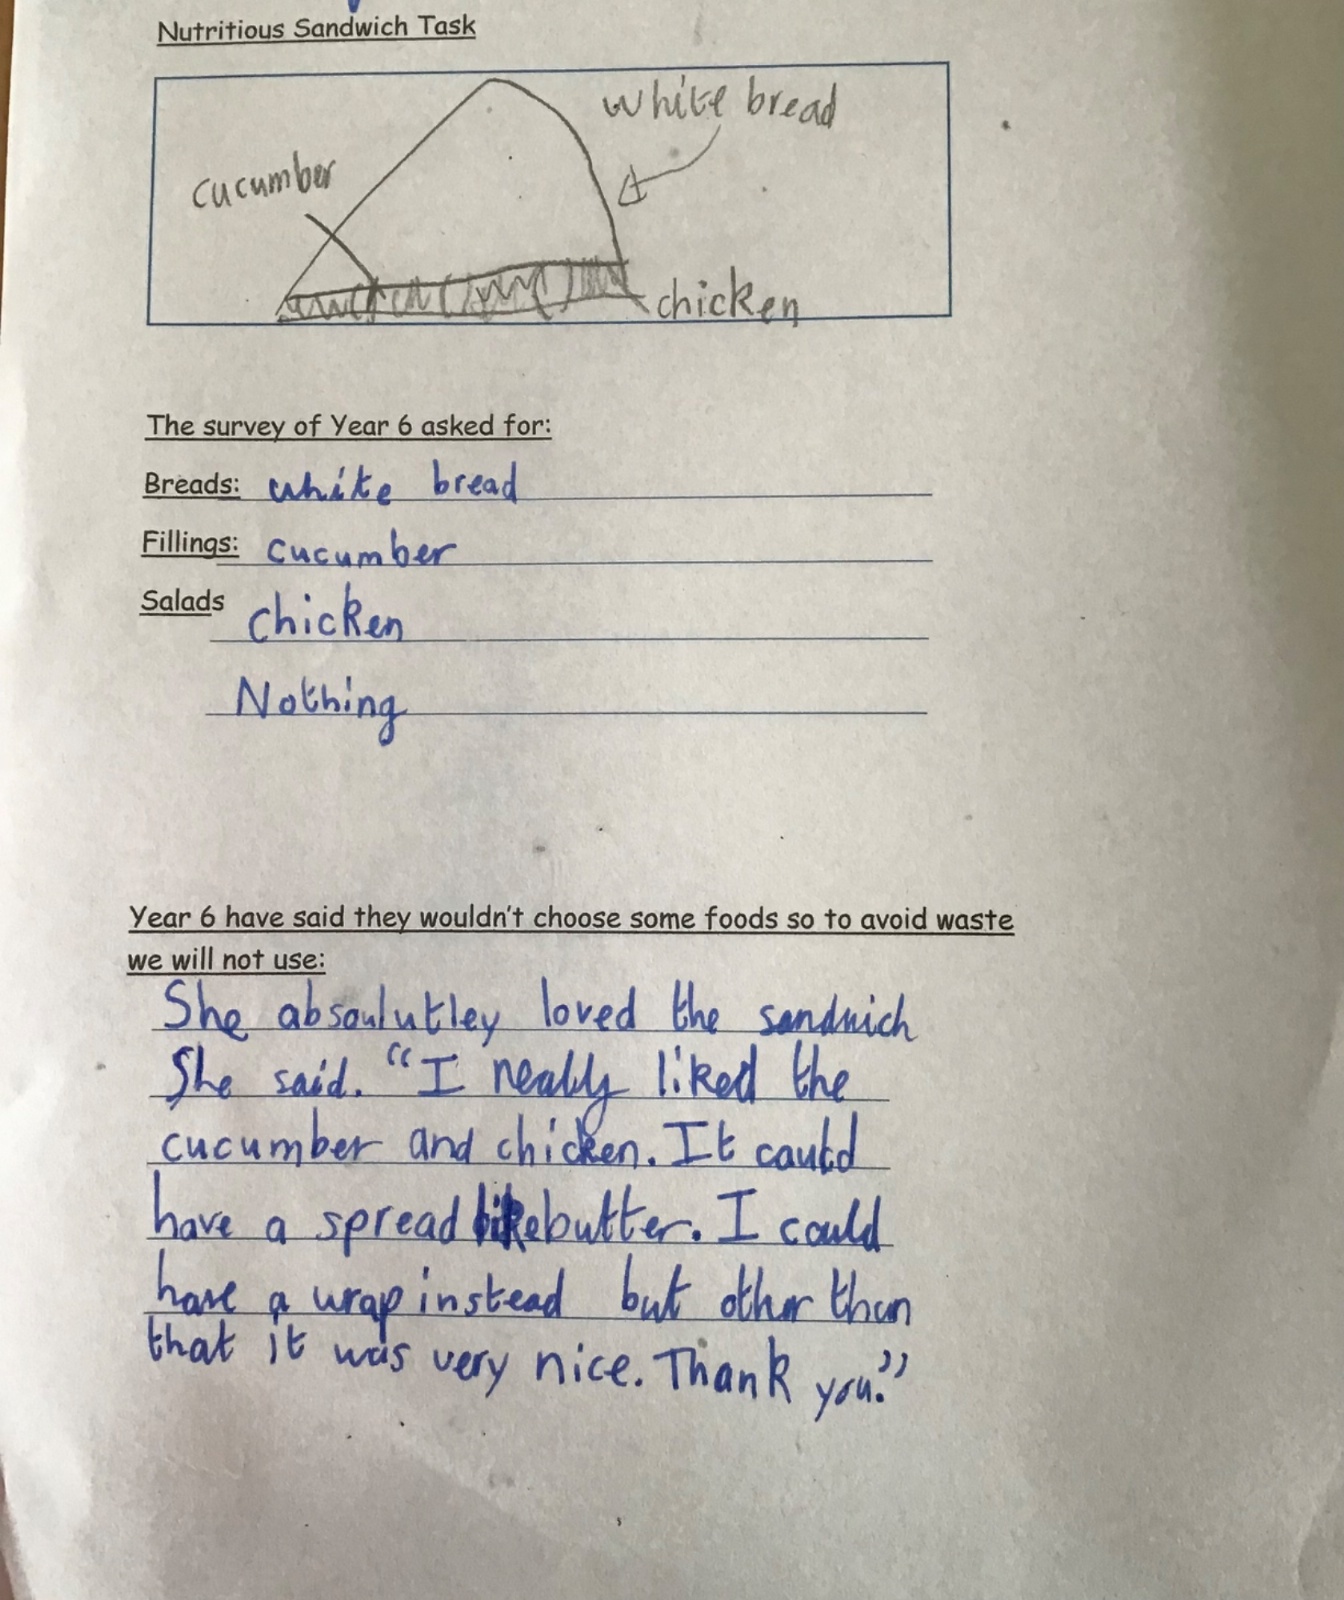 Nutritious Sandwich Task
white bread
cucumber
chicken
The survey of Year 6 asked for:
Breads: white bread
Fillings: cucumber
Salads chicken
Nothing
Year 6 have said they wouldn't choose some foods so to avoid waste
we will not use:
She absoulutley loved the sandwich
She said. "I really liked the
cucumber and chicken. It could
have a spread like butter. I could
have a wrap instead but other than
that it was very nice. Thank you."